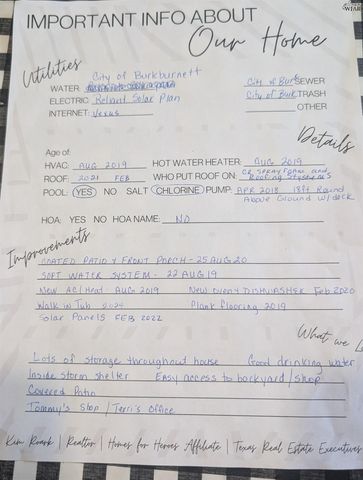 IMPORTANT INFO ABOUT
Our Home
Utilities
City of Burkburnett
WATER
City of Burk SEWER
ELECTRIC Reliant Solar Plan
City of Burk TRASH
INTERNET Vexus
OTHER
Details
Age of:
HVAC: AUG 2019 HOT WATER HEATER: AUG 2019
ROOF: 2021 FEB WHO PUT ROOF ON: CR SPRAY FOAM and
Roofing
POOL: YES NO SALT CHLORINE PUMP: APR 2018 18ft Round
Above Ground w/deck
HOA: YES NO HOA NAME: NO
Improvements
COATED PATIO & FRONT PORCH - 25 AUG 20
SOFT WATER SYSTEM - 22 AUG 19
New AC/Heat - AUG 2019 New Oven & DISHWASHER Feb 2020
Walk in Tub 2024 Plank flooring 2019
Solar Panels FEB 2022
What we
Lots of storage throughout house Good drinking water
Inside storm shelter Easy access to backyard/shop
Covered Patio
Tommy's Shop / Terri's Office
Kim Roark | Realtor | Homes for Heroes Affiliate | Texas Real Estate Executives